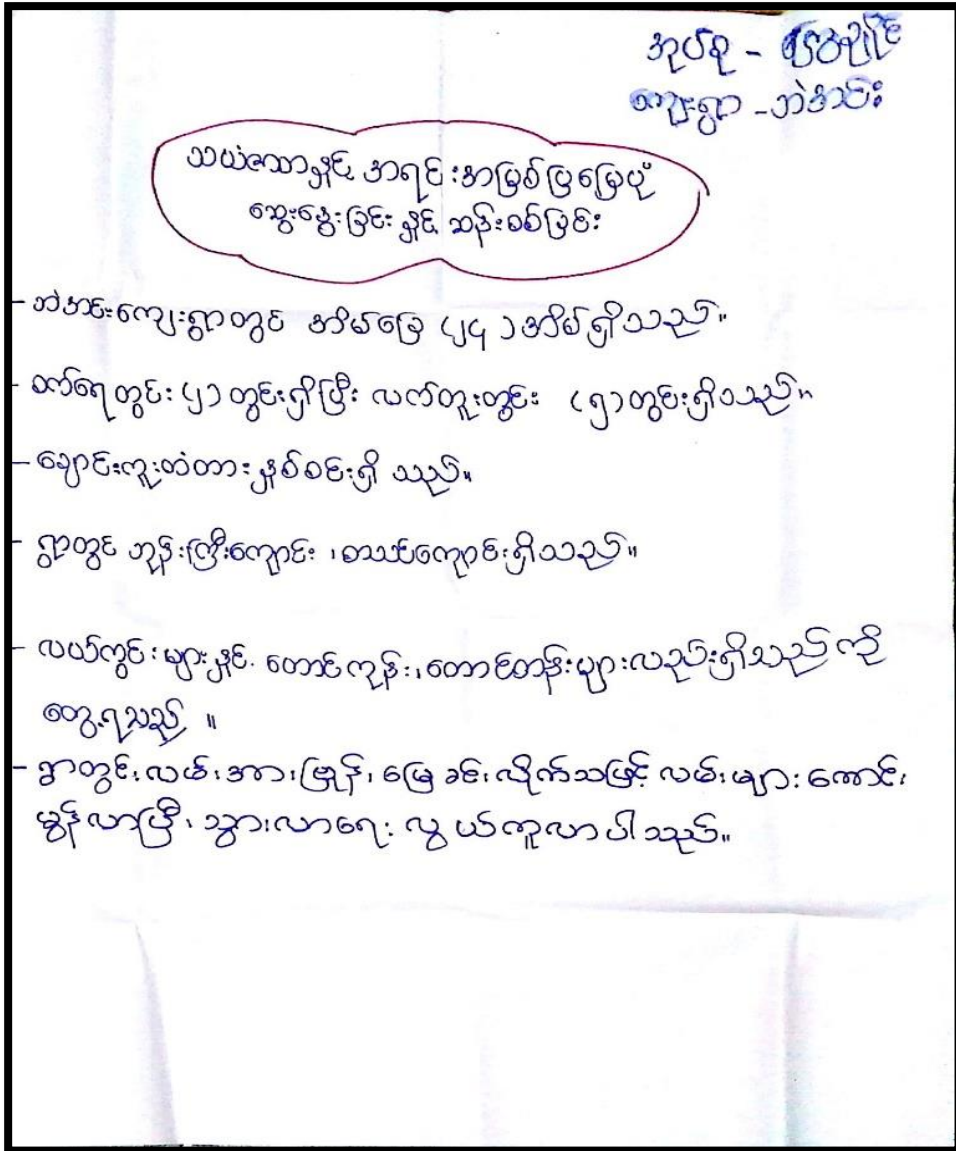 အုပ်စု -
ကျေးရွာ - ဘဲအင်း
သယံဇာတနှင့် အရင်းအမြစ်ပြမြေပုံ
ဆွေးနွေးခြင်း နှင့် ဆန်းစစ်ခြင်း
- ဘဲအင်းကျေးရွာတွင် အိမ်ခြေ (၂၄) အိမ်ရှိသည်။
- စက်ရေတွင်း (၂) တွင်းရှိပြီး လက်တူးတွင်း (၅) တွင်းရှိသည်။
- ချောင်းကူးတံတား နှစ်စင်းရှိ သည်။
- ရွာတွင် ဘုန်းကြီးကျောင်း ၊ စာသင်ကျောင်းရှိသည်။
- လယ်ကွင်းများနှင့် တောင်ကုန်း၊ တောင်တန်းများလည်းရှိသည် ကို
တွေ့ရသည် ။
- ရွာတွင်းလမ်းအား ဖြုန်းမြေခင်းလိုက်သဖြင့် လမ်းများကောင်း
မွန်လာပြီး သွားလာရေး လွယ်ကူလာပါသည်။